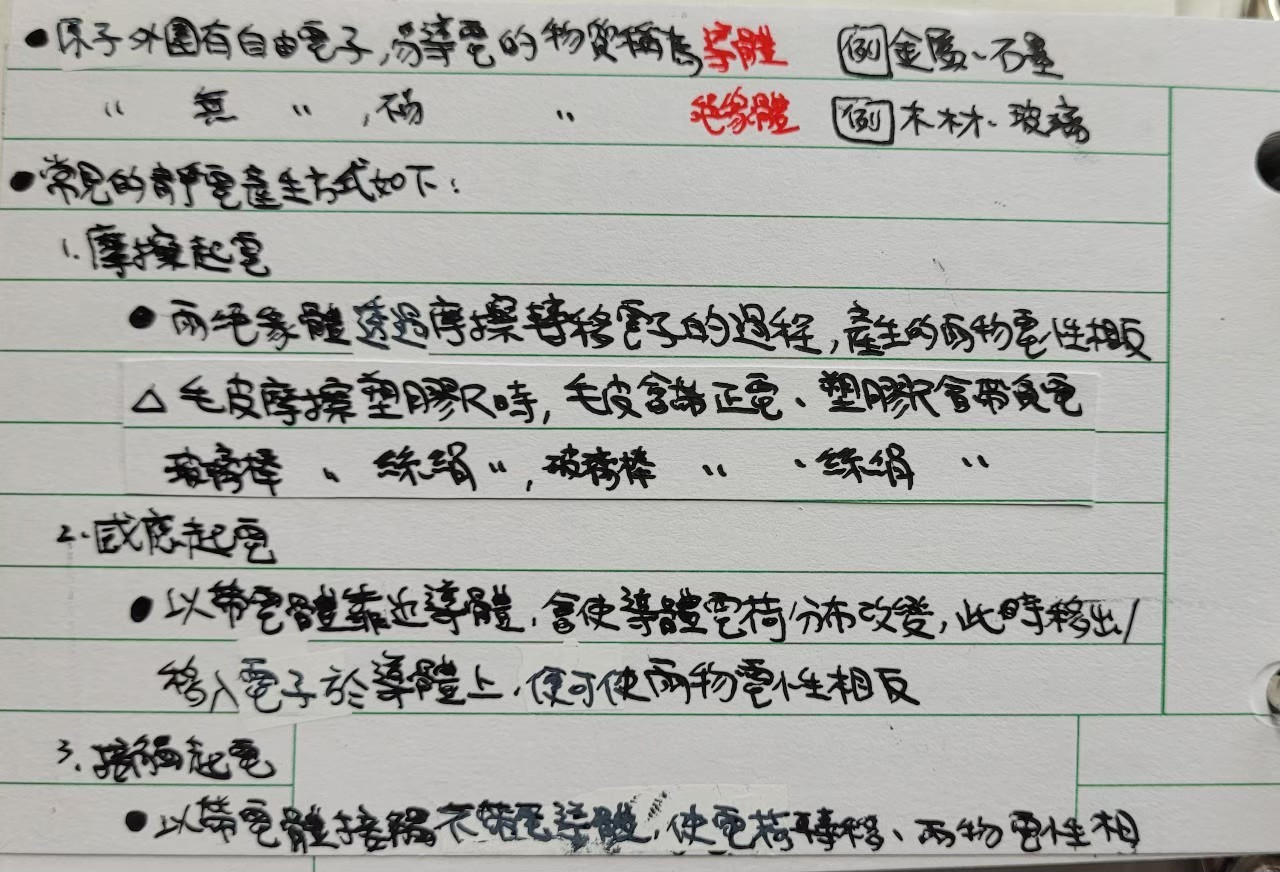 ●原子外圍有自由電子,易導電的物質稱為導體 例金屬、石墨
〃 無 〃 ,不易 〃 絕緣體 例木材、玻璃
●常見的靜電產生方式如下:
1.摩擦起電
●兩絕緣體透過摩擦轉移電子的過程,產生的兩物電性相反
△毛皮摩擦塑膠尺時,毛皮會帶正電、塑膠尺會帶負電
玻璃棒 〃 絲絹〃,玻璃棒 〃 、絲絹 〃
2.感應起電
●以帶電體靠近導體,會使導體電荷分布改變,此時移出/
移入電子於導體上,便可使兩物電性相反
3.接觸起電
●以帶電體接觸不帶電導體,使電荷轉移、兩物電性相